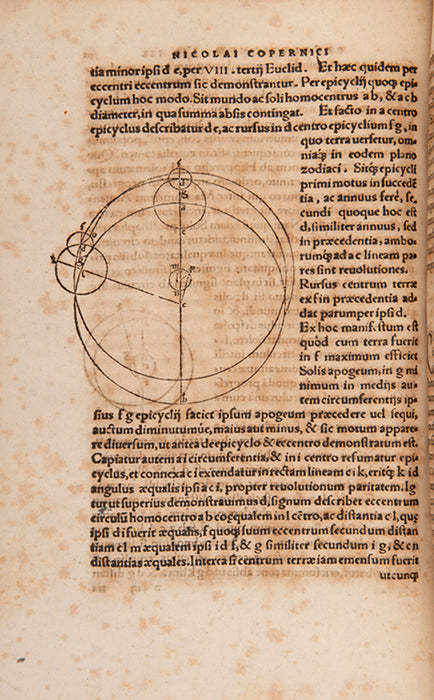 NICOLAI COPERNICI
tia minor ipsi d e, per VIII. tertij Euclid. Et hæc quidem per
eccentri eccentrum sic demonstrantur. Per epicyclij quoq; epi
cyclum hoc modo. Sit mundo ac soli homocentrus a b, & a c b
diameter, in qua summa absis contingat. Et facto in a centro
epicyclus describatur d e, ac rursus in d centro epicyclium f g, in
quo terra uersetur, om
niaq; in eodem plano
zodiaci. Sitq; epicycli
primi motus in succedē
tia, ac annuus ferè, se,
cundi quoque hoc est
d, similiter annuus, sed
in præcedentia, ambo,
rumq; ad a c lineam pa,
res sint reuolutiones.
Rursus centrum terræ
ex f in præcedentia ad,
dat parumper ipsi d.
Ex hoc manifestum est
quòd cum terra fuerit
in f maximum efficiet
Solis apogeum, in g mi
nimum in medijs au,
tem circumferentijs ip,
sius f g epicyclij faciet ipsum apogeum præcedere uel sequi,
auctum diminutumúe, maius aut minus, & sic motum appare
re diuersum, ut antea de epicyclo & eccentro demonstratum est.
Capiatur autem a i circumferentia, & in i centro resumatur epi,
cyclus, et connexa c i extendatur in rectam lineam c i k, eritq; k i d
angulus æqualis ipsi a c i, propter reuolutionum paritatem. Ig
tur ut superius demonstrauimus d, signum describet eccentrum
circulū homocentro a b coæqualem in l cētro, ac distantia c l, quę
ipsi d i fuerit æqualis, f quoq; suum eccentrum secundum distan
tiam c l m æqualem ipsi i d f, & g similiter secundum i g, & c n
distantias æquales. Interea si centrum terræ iam emensum fuerit
utcunq;